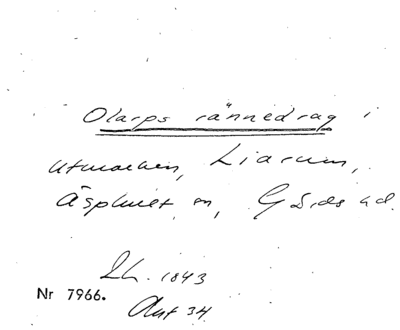 Olarps rännedrag i
utmarken, Liarum,
Äsphult sn, Gärds hd.
Lh. 1843
Nr 7966.
Akt 34